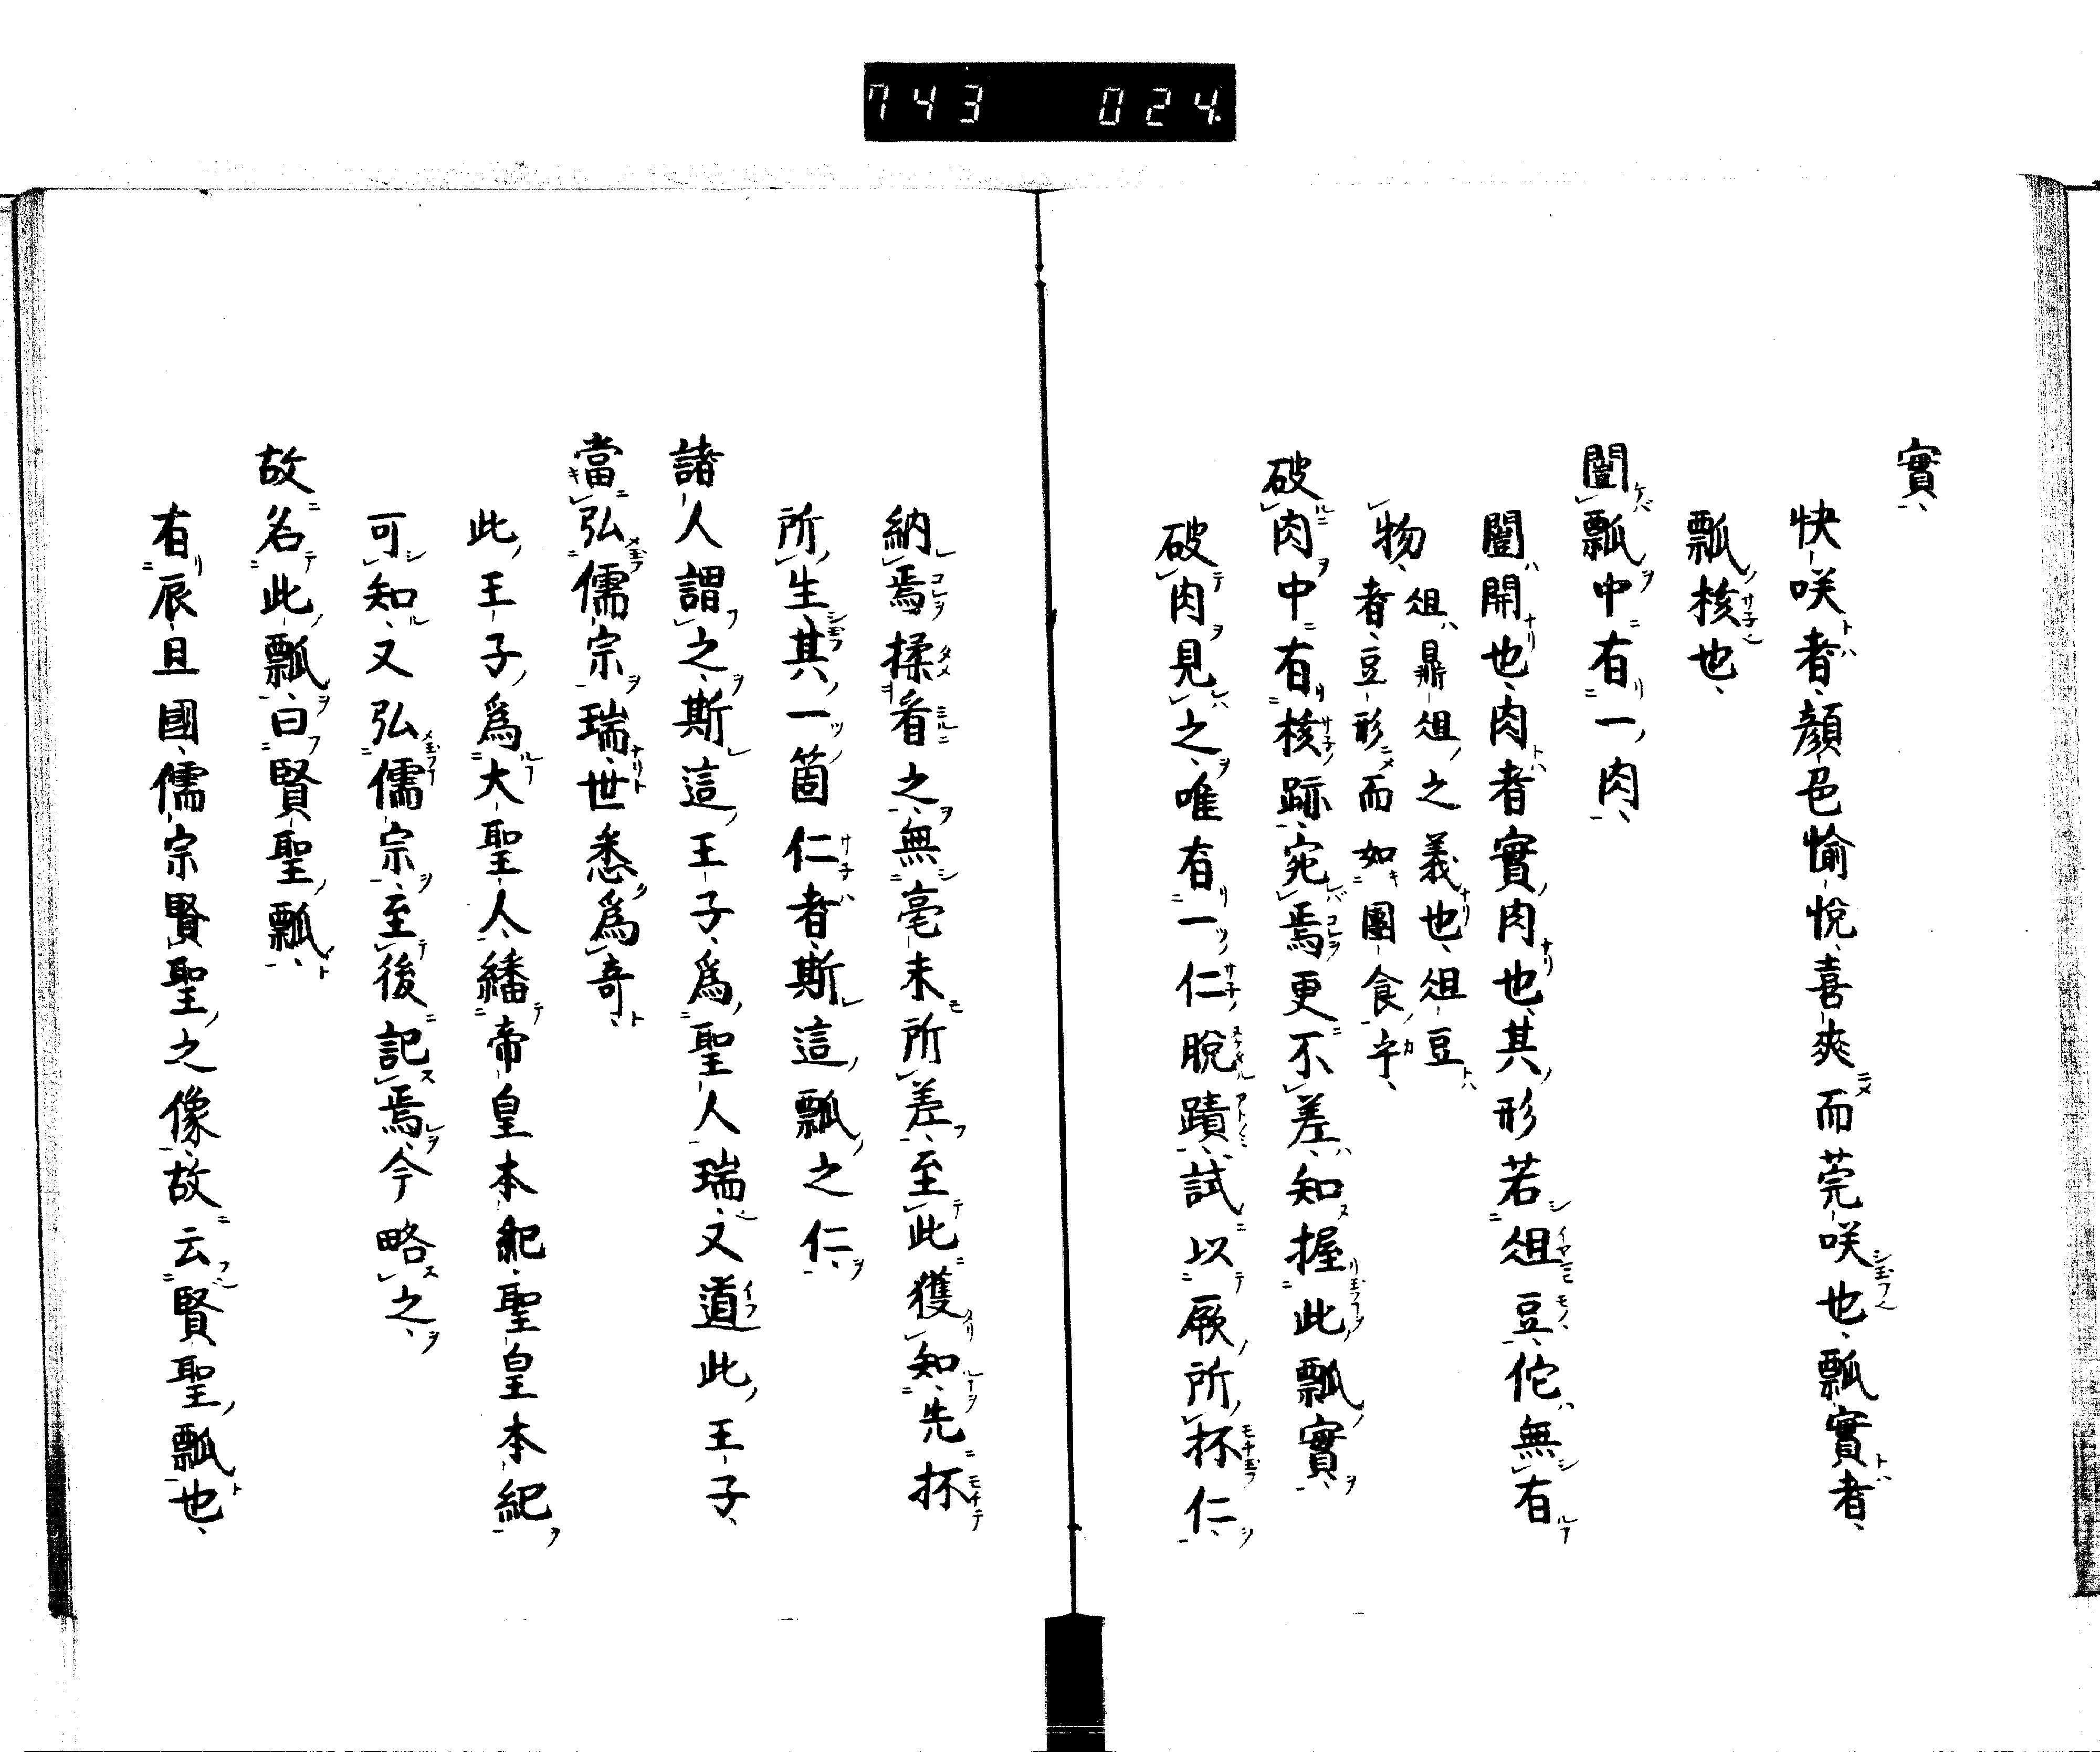 743 024.
實、
快咲者、顏色愉悅、喜爽而莞咲也、瓢實者、
瓢核也、
闓瓢中有一肉、
闓開也、肉者實肉也、其形若俎豆、佗無有
物、俎鼎俎之義也、俎豆
者、豆形而如團食字、
破肉中有核跡、宛焉更不差、知握此瓢實、
破肉見之、唯有一仁脫蹟、試以厥所抔仁、
納焉揉看之、無毫末所差、至此獲知、先抔
所生、其一箇仁者、斯這瓢之仁、
諸人謂之、斯這王子、爲聖人瑞、又道此王子、
當弘儒宗瑞、世悉爲奇、
此王子、爲大聖人、繙帝皇本紀、聖皇本紀
可知、又弘儒宗、至後記焉、今略之、
故名此瓢、曰賢聖瓢、
有辰旦國、儒宗賢聖之像、故云賢聖瓢也、